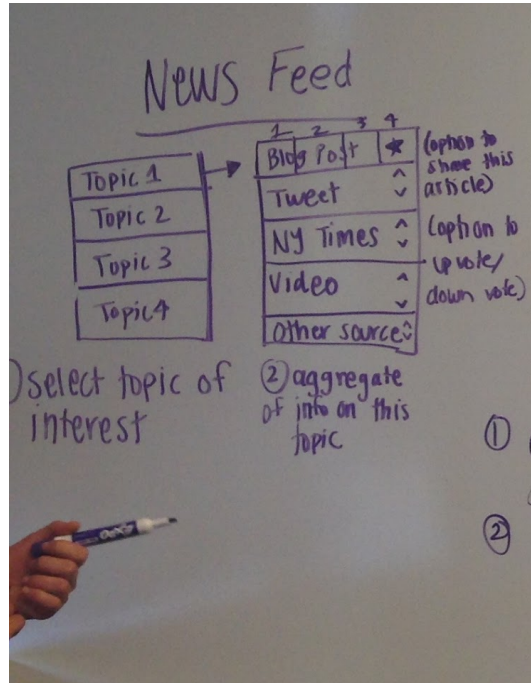 News Feed
Topic 1
Topic 2
Topic 3
Topic 4
1 2 3 4
Blog Post ★
Tweet
NY Times
Video
Other source
(option to
share this
article)
(option to
upvote/
down vote)
) select topic of
interest
② aggregate
of info on this
topic
①
②
EXPO